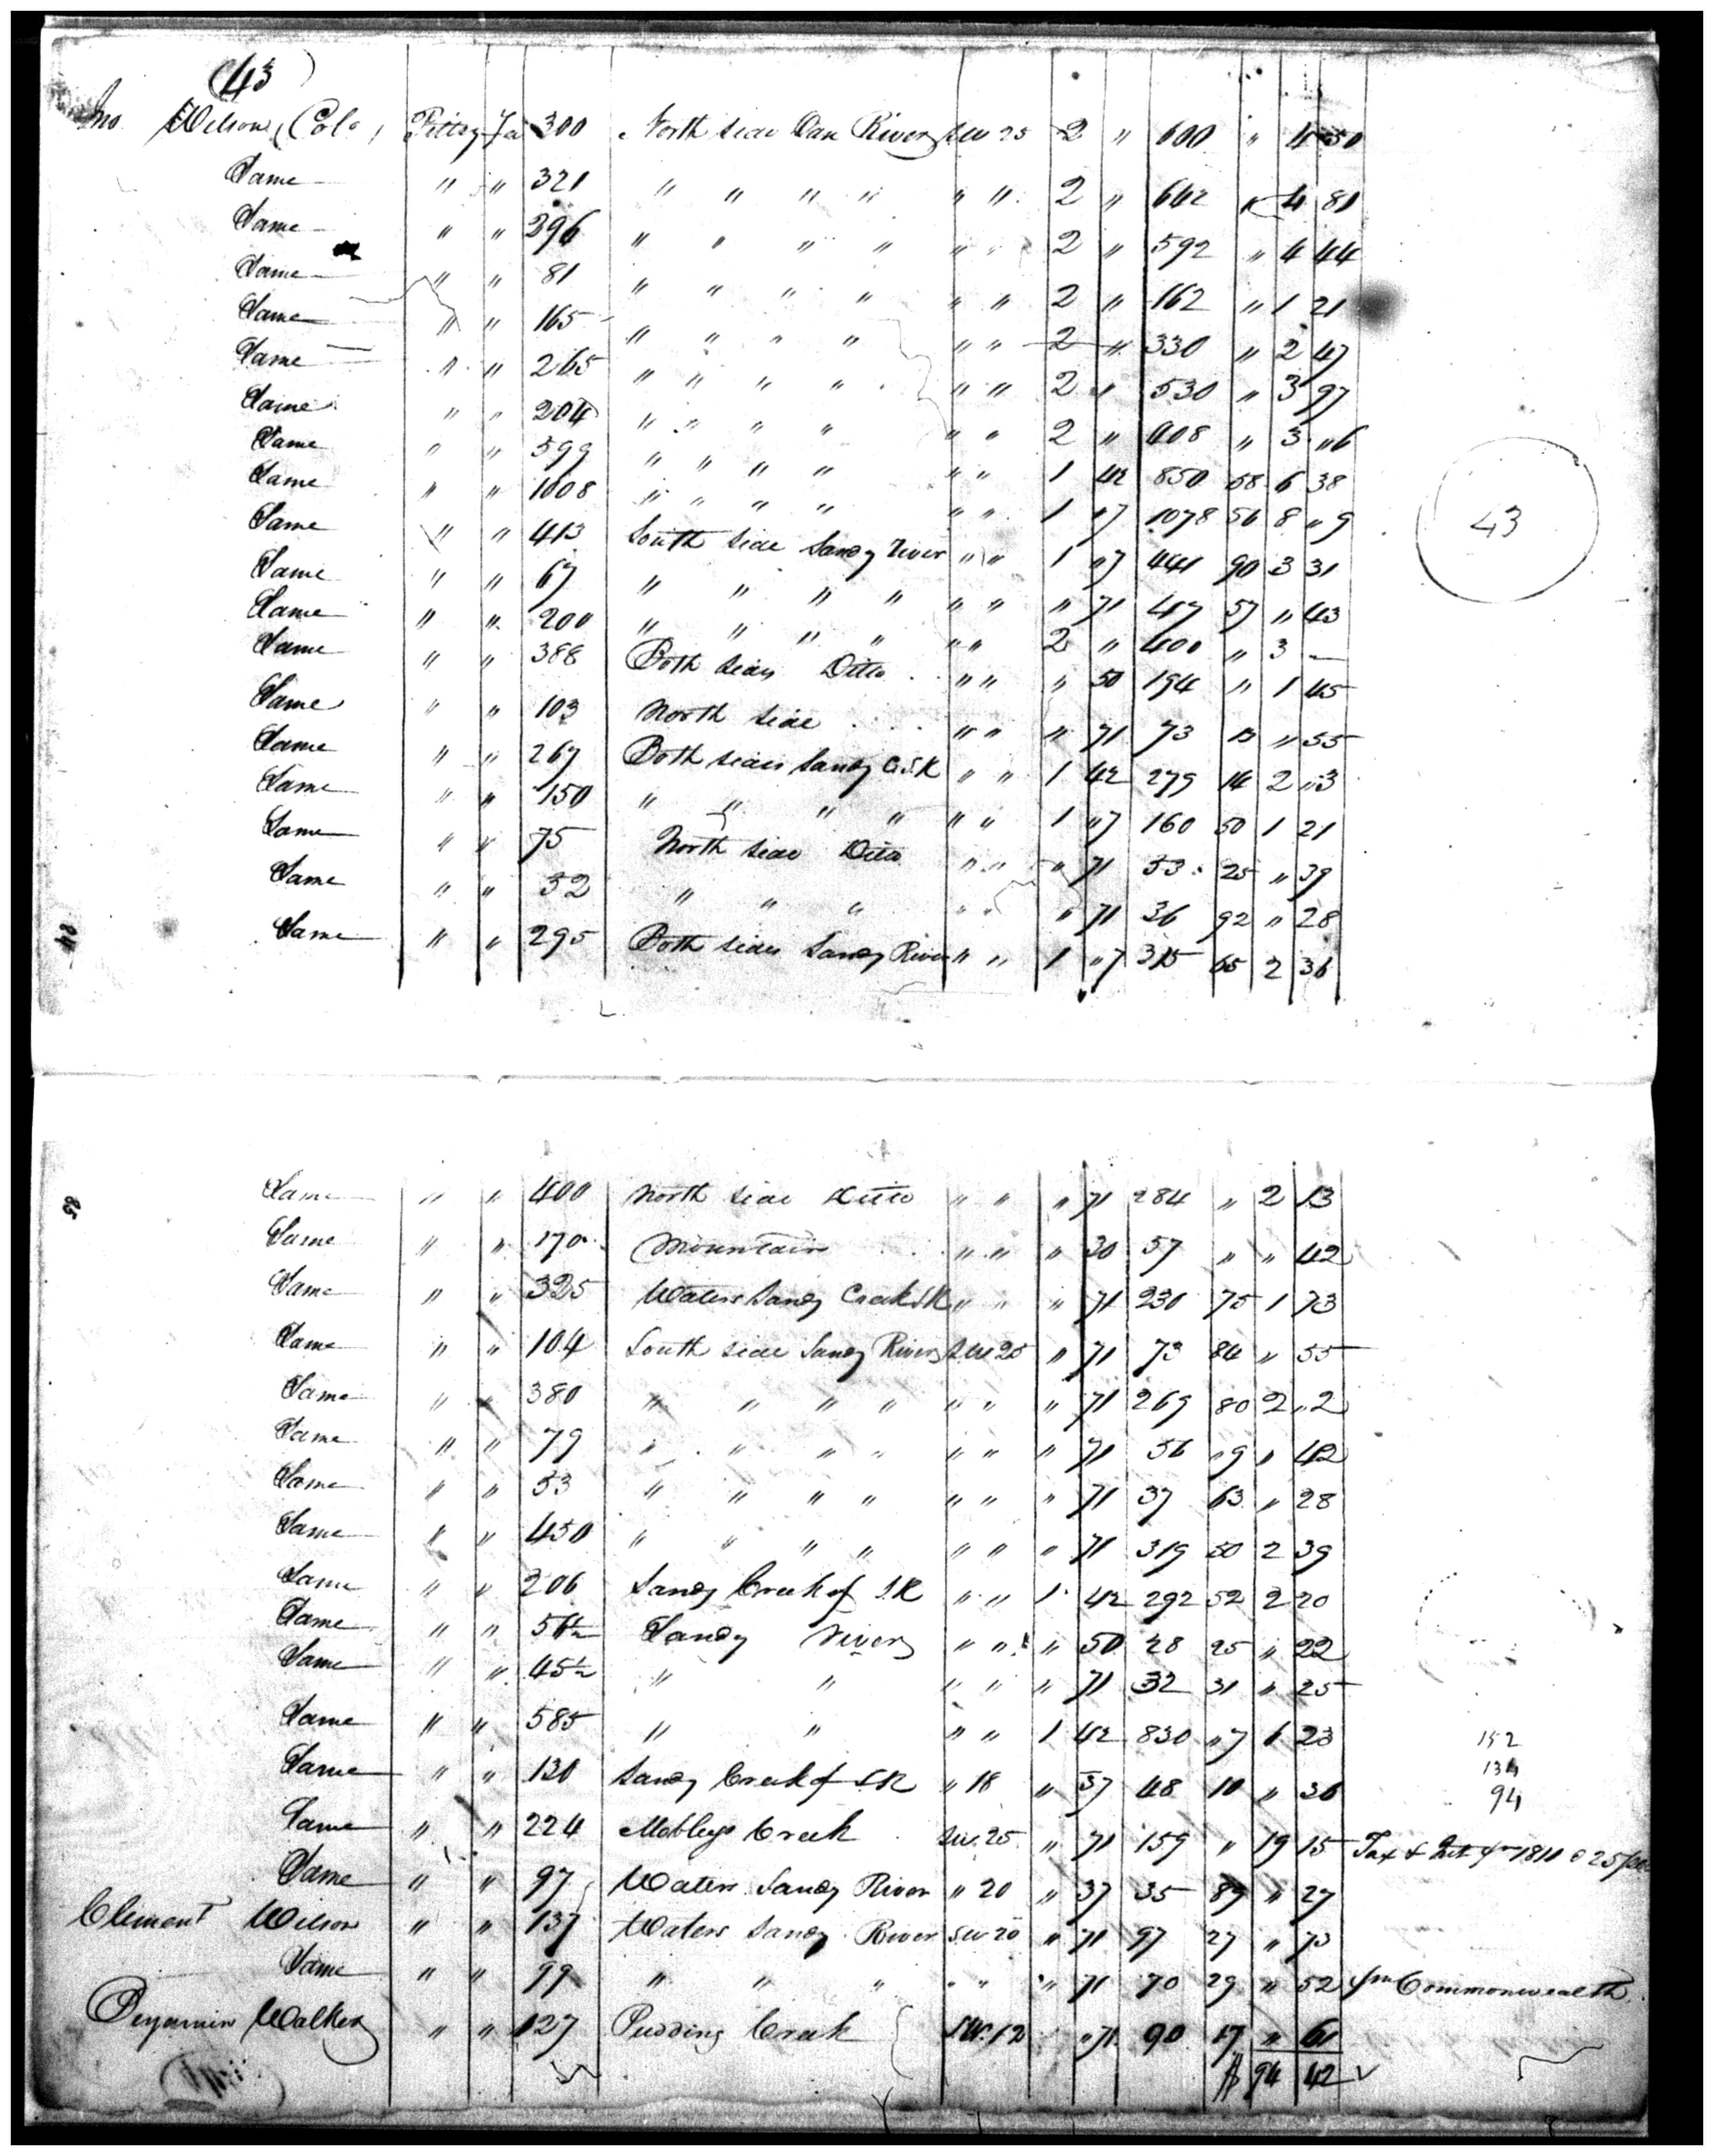 (43)
Jno Wilson (Colo) Pittsy Va 300 North side Dan River SW 25 2 " 600 " 4 50
Same " " 321 " " " " " " 2 " 642 " 4 81
Same " " 296 " " " " " " 2 " 592 " 4 44
Same " " 81 " " " " " " 2 " 162 " 1 21
Same " " 165 " " " " " " 2 " 330 " 2 47
Same " " 265 " " " " " " 2 " 530 " 3 97
Same " " 204 " " " " " " 2 " 408 " 3 "6
Same " " 599 " " " " " " 1 42 850 58 6 38
Same " " 1008 " " " " " " 1 "7 1078 56 8 "9
Same " " 413 South side Sandy River " " 1 "7 441 90 3 31
Same " " 67 " " " " " " " 71 47 57 " 43
Same " " 200 " " " " " " 2 " 400 " 3 —
Same " " 388 Both sides Ditto " " " 50 194 " 1 45
Same " " 103 North side " " " 71 73 13 " 55
Same " " 267 Both sides Sandy C.S.R " " 1 42 279 14 2 "3
Same " " 150 " " " " " " 1 "7 160 50 1 21
Same " " 75 North side Ditto " " " 71 53 25 " 39
Same " " 52 " " " " " " 71 36 92 " 28
Same " " 295 Both sides Sandy River " " 1 "7 315 65 2 36
43
84
85
Same " " 400 North side Ditto " " " 71 284 " 2 13
Same " " 170 Mountain " " " 30 57 " " 42
Same " " 325 Waters Sandy Creek S.R " " " 71 230 75 1 73
Same " " 104 South side Sandy River SW 25 " 71 73 84 " 55
Same " " 380 " " " " " " " 71 269 80 2 "2
Same " " 79 " " " " " " " 71 56 "9 " 42
Same " " 53 " " " " " " " 71 37 63 " 28
Same " " 450 " " " " " " " 71 319 50 2 39
Same " " 206 Sandy Creek of S.R " " 1 42 292 52 2 20
Same " " 56½ Sandy River " " " 50 28 25 " 22
Same " " 45½ " " " " " 71 32 31 " 25
Same " " 585 " " " " 1 42 830 "7 6 23
Same " " 130 Sandy Creek of S.R " 18 " 37 48 10 " 36
Same " " 224 Mobleys Creek SW. 25 " 71 159 " 19 15 Tax & Int fm 1810 @ 25
Same " " 97 Waters Sandy River " 20 " 37 35 89 " 27
Clement Wilson " " 137 Waters Sandy River SW 20 " 71 97 27 " 73
Same " " 99 " " " " " " 71 70 29 " 52 fm Commonwealth
Benjamin Walker " " 127 Pudding Creek S.W. 12 " 71 90 17 " 61
$ 94 42
152
134
94